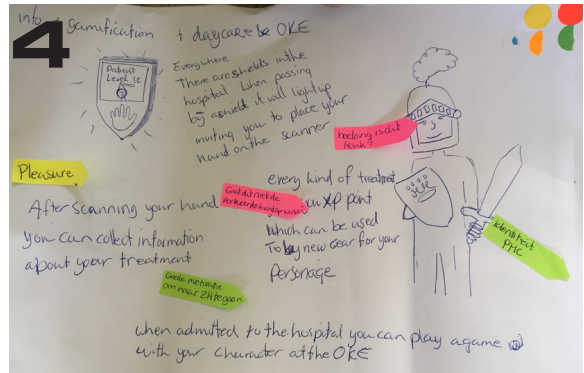 4
info + gamification + daycare be OKE
Patient
Level 12
Everywhere
There are shields in the
hospital when passing
by a shield it will light up
inviting you to place your
hand on the scanner
hoelang is dit
leuk?
Pleasure.
After scanning your hand
you can collect information
about your treatment
Gaat dit niet de
every kind of treatment
you XP point
which can be used
To buy new Gear for your
Personage
identiteit
PMC
Goede motivatie
om naar ZH te gaan
when admitted to the hospital you can play a game
with your character at the OKE